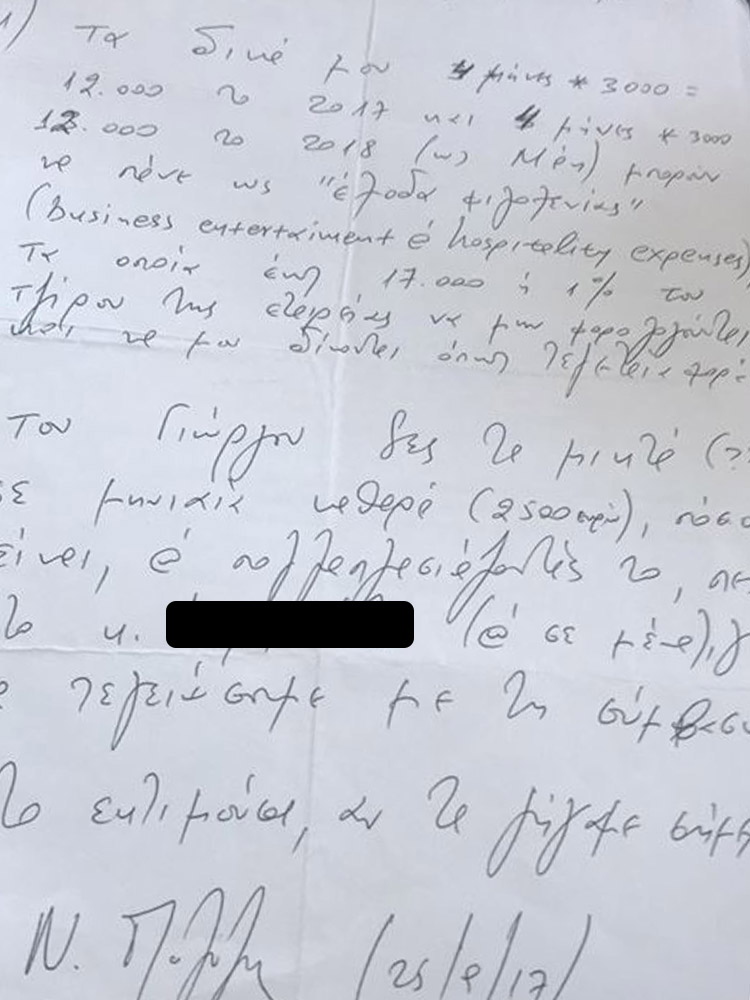 1) Τα δικά μου 4 μήνες * 3000 =
12.000 το 2017 και 4 μήνες * 3000
12.000 το 2018 (ως Μάη) μπορούν
να πάνε ως "έξοδα φιλοξενίας"
(Business entertaiment ή hospitality expenses)
Τα οποία έως 17.000 ή 1% του
τζίρου της εταιρείας να μην φορολογούνται,
και να μου δίνονται, όπως τελευταία φορά
Του Γιώργου δες τα μικτά (?
σε μηνιαία καθαρά (2500 ευρώ), πόσο
είναι, ή πολλαπλασίασέ το,
το κ. (ή σε μένα),
τελειώσουμε με τη σύμβαση
το εκτιμούσα, αν τα λέγαμε σήμε
Ν. (25/9/17)